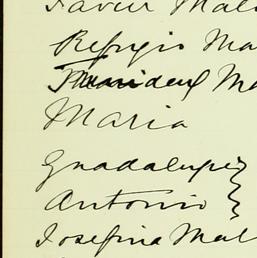 Javier Mal
Refugio Ma
Ma
Maria
Guadalupe }
Antonio }
Josefina Mal